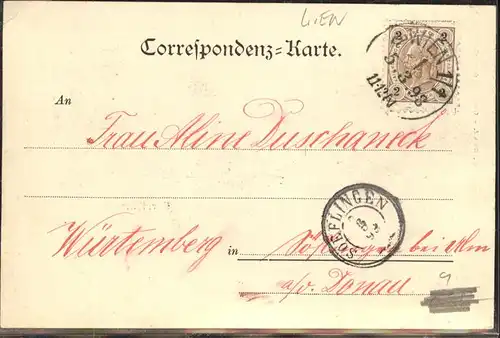 Wien
Correspondenz=Karte.
2 2
WIEN 1/1
5. 3. 98
2 2
An
Frau Aline Duschaneck
SOEFLINGEN
Würtemberg in Söflingen bei Ulm
a/d. Donau
9